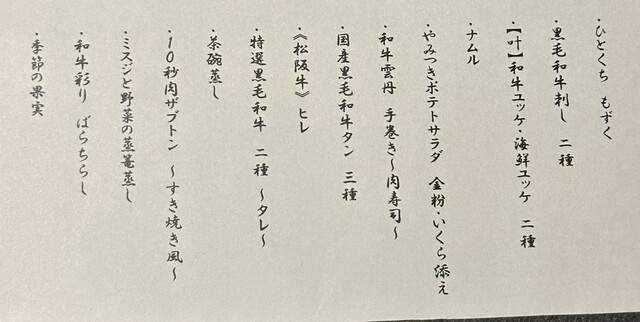 ・ひとくち もずく
・黒毛和牛刺し 二種
・【叶】和牛ユッケ・海鮮ユッケ 二種
・ナムル
・やみつきポテトサラダ 金粉・いくら添え
・和牛雲丹 手巻き～肉寿司～
・国産黒毛和牛タン 三種
・《松阪牛》ヒレ
・特選黒毛和牛 二種 ～タレ～
・茶碗蒸し
・10秒肉ザブトン ～すき焼き風～
・ミスジと野菜の蒸篭蒸し
・和牛彩り ばらちらし
・季節の果実